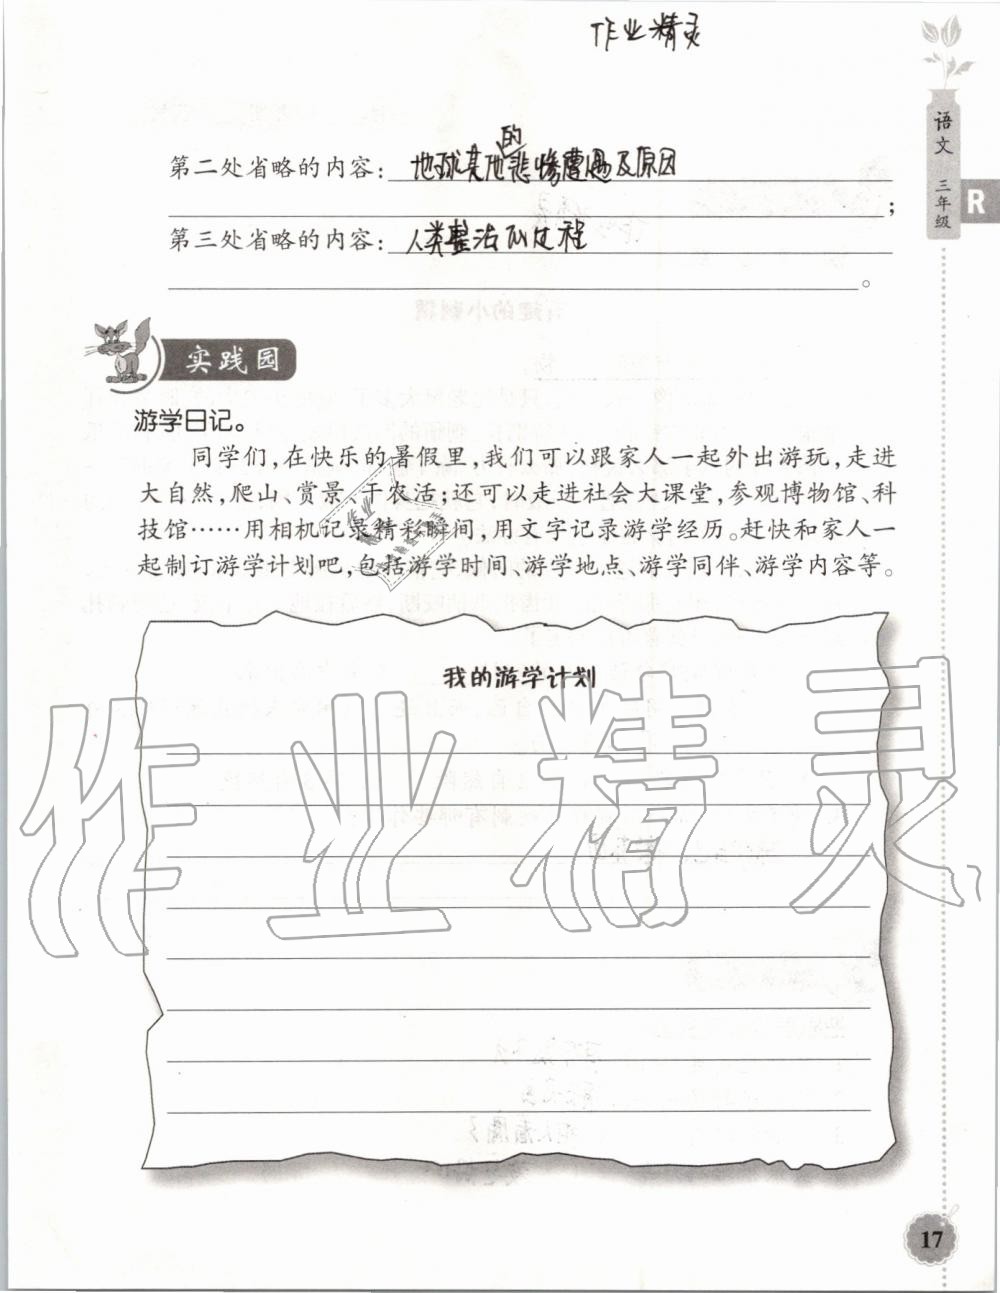 作业精灵
语文 三年级
R
第二处省略的内容：地球某地的悲惨遭遇及原因
；
第三处省略的内容：人类整治的过程
。
实践园
游学日记。
同学们，在快乐的暑假里，我们可以跟家人一起外出游玩，走进
大自然，爬山、赏景、干农活；还可以走进社会大课堂，参观博物馆、科
技馆……用相机记录精彩瞬间，用文字记录游学经历。赶快和家人一
起制订游学计划吧，包括游学时间、游学地点、游学同伴、游学内容等。
我的游学计划
作业精灵
17